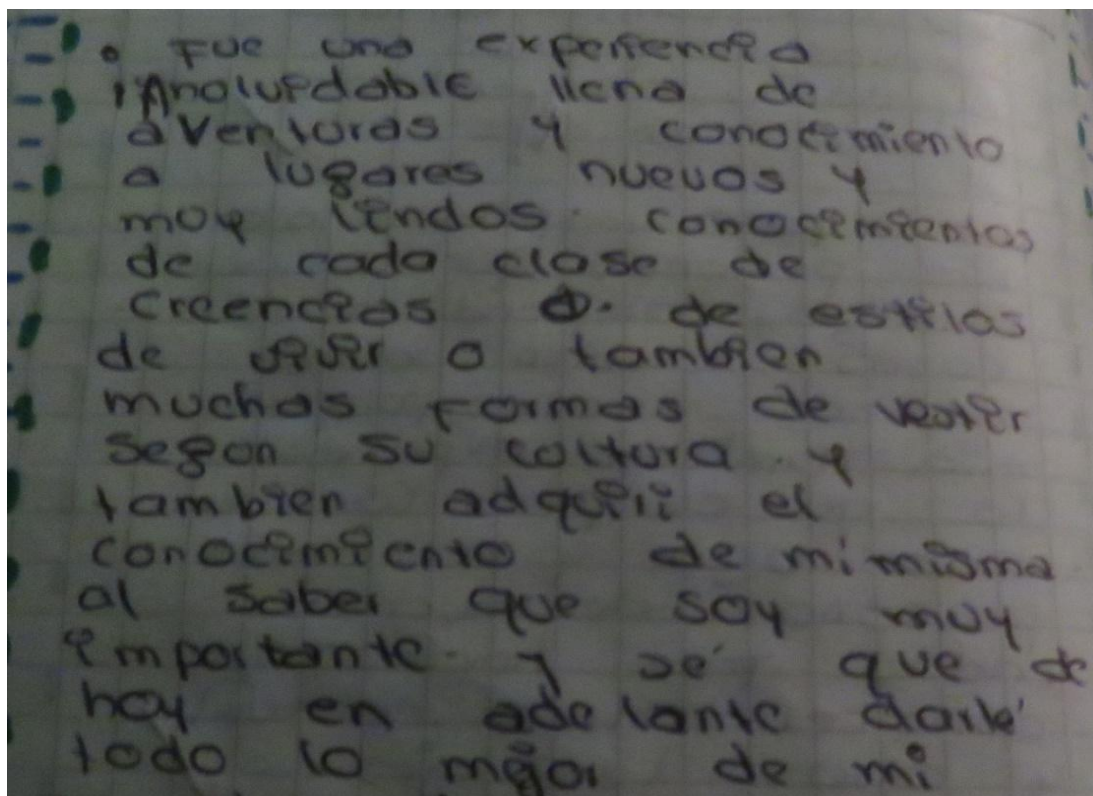 • Fue una experiencia
innolvidable llena de
aventuras y conocimiento
a lugares nuevos y
muy lindos. conocimientos
de cada clase de
creencias o. de estilos
de vivir o tambien
muchas formas de vestir
segun su cultura. y
tambien adquiri el
conocimiento de mi misma
al saber que soy muy
importante. y sé que de
hoy en adelante daré
todo lo mejor de mi